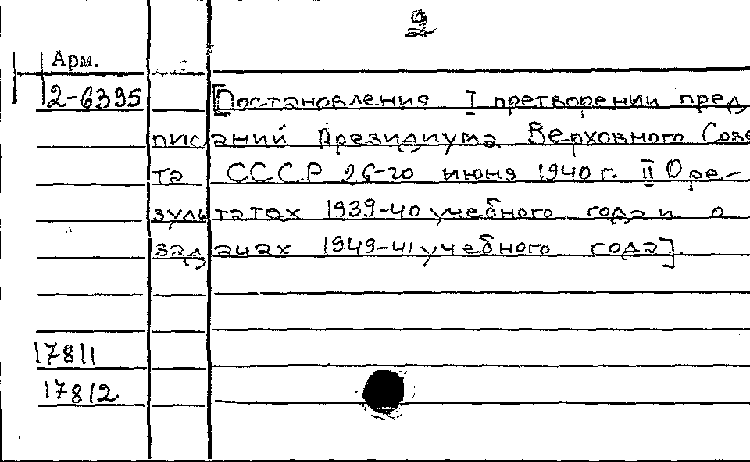 2
Арм.
2-6395 [Постановления I претворении пред
писаний Президиума Верховного Сове
та СССР 26-го июня 1940 г. II О ре-
зультатах 1939-40 учебного года и о
задачах 1949-41 учебного года]
17811
17812